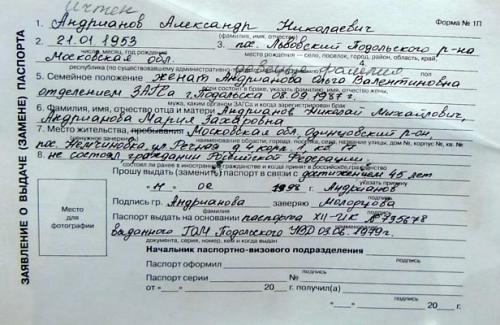 Учтен
Форма № 1П
1. Андрианов Александр Николаевич
(фамилия, имя, отчество)
2. 21.01.1953 3. пос. Львовский Подольского р-на
число, месяц, год рождения место рождения — село, поселок, город, район, область, край,
Московская обл.
республика (по существовавшему административному
пол
5. Семейное положение женат Андрианова Ольга Валентиновна
если состоит в браке, указать фамилию, имя, отчество жены,
отделением ЗАГСа г. Подольска 08.09.1987г.
мужа, каким органом ЗАГСа и когда зарегистрирован брак
6. Фамилия, имя, отчество отца и матери Андрианов Николай Михайлович,
Андрианова Мария Захаровна
7. Место жительства, пребывания Московская обл., Одинцовский р-он,
(ненужное зачеркнуть) наименование области, города, поселка, села, название улицы, дом №, корпус №, кв. №
пос. Немчиновка, ул. Речная д. 4 корп. 1, кв. 17
8. не состоял, гражданин Российской Федерации.
состоял ли ранее в иностранном гражданстве и когда принят в российское гражданство
Прошу выдать (заменить) паспорт в связи с достижением 45 лет
указать причину
"11" 02 1998 г. Андрианов
подпись
Подпись гр. Андрианова заверяю
фамилия подпись
Паспорт выдать на основании паспорта XII-ИК № 735678
выданного ГОМ Подольского УВД 03.06.1979г.
документа, серия, номер, кем и когда выдан
Начальник паспортно-визового подразделения
подпись
Паспорт оформил
подпись
Паспорт серии № 
от "__" ____ 20__ г. получил(а)
подпись
"__" ____ 20__ г.
Место
для
фотографии
ЗАЯВЛЕНИЕ О ВЫДАЧЕ (ЗАМЕНЕ) ПАСПОРТА